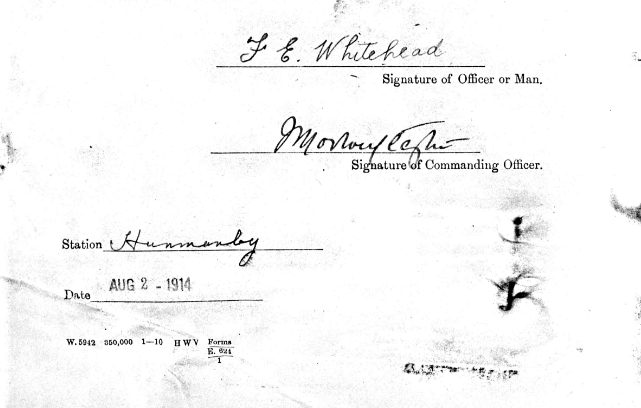 F E. Whitehead
Signature of Officer or Man.
Signature of Commanding Officer.
Station Hunmanby
Date AUG 2 - 1914
W.5942 350,000 1—10 HWV Forms
E. 624
1